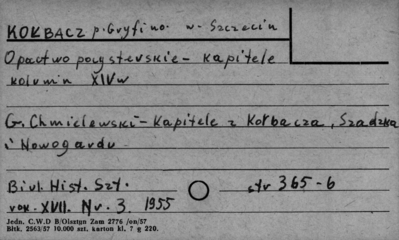 KOŁBACZ p. Gryfino. w- Szczecin
Opactwo pocysterskie - kapitele
kolumn XIVw
G. Chmielewski - Kapitele z Kołbacza, Szadzka
i Nowogardu
Biul. Hist. Szt. str 365-6
rok. XVII. Nr. 3. 1955
Jedn. C.W.D B/Olsztyn Zam 2776 /on/57
Bltk. 2563/57 10.000 szt. karton kl. 7 g 220.